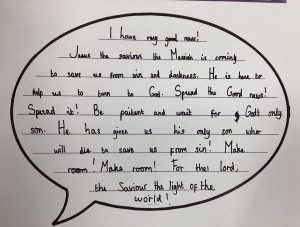 I have very good news!
Jesus the saviour the Messiah is coming
to save us from sin and darkness. He is here to
help us to turn to God. Spread the Good news!
Spread it! Be paitent and wait for God's only
son. He has given us his only son who
will die to save us from sin! Make
room! Make room! For the lord,
the Saviour the light of the
world!